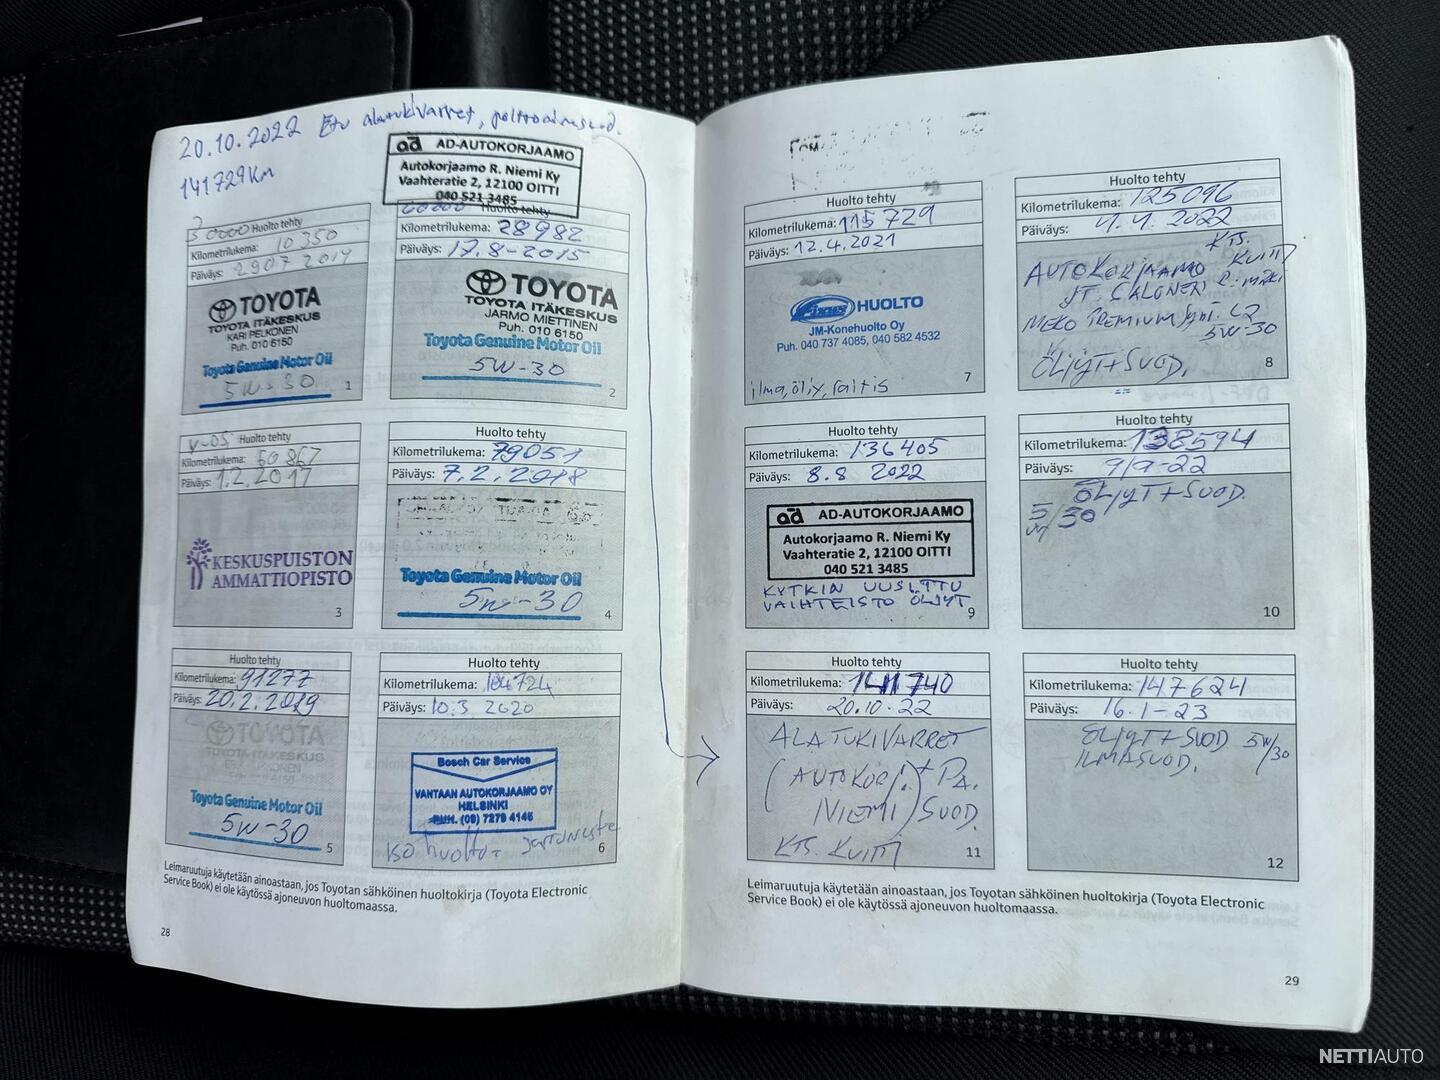 20.10.2022 Etu alatukivarret, polttoainesuod.
141729km
ad AD-AUTOKORJAAMO
Autokorjaamo R. Niemi Ky
Vaahteratie 2, 12100 OITTI
040 521 3485
30000 Huolto tehty
Kilometrilukema: 10350
Päiväys: 2907 2014
TOYOTA
TOYOTA ITÄKESKUS
KARI PELKONEN
Puh. 010 6150
Toyota Genuine Motor Oil
5W-30
1
60000 Huolto tehty
Kilometrilukema: 28982
Päiväys: 17.8-2015
TOYOTA
TOYOTA ITÄKESKUS
JARMO MIETTINEN
Puh. 010 6150
Toyota Genuine Motor Oil
5W-30
2
V-05 Huolto tehty
Kilometrilukema: 50867
Päiväys: 1.2.2017
KESKUSPUISTON
AMMATTIOPISTO
3
Huolto tehty
Kilometrilukema: 79051
Päiväys: 7.2.2018
Toyota Genuine Motor Oil
5W-30
4
Huolto tehty
Kilometrilukema: 91277
Päiväys: 20.2.2019
TOYOTA
TOYOTA ITÄKESKUS
Toyota Genuine Motor Oil
5W-30
5
Huolto tehty
Kilometrilukema: 104724
Päiväys: 10.3 2020
Bosch Car Service
VANTAAN AUTOKORJAAMO OY
HELSINKI
PUH. (09) 7279 4145
iso huolto + jarruneste
6
Leimaruutuja käytetään ainoastaan, jos Toyotan sähköinen huoltokirja (Toyota Electronic
Service Book) ei ole käytössä ajoneuvon huoltomaassa.
28
Huolto tehty
Kilometrilukema: 115729
Päiväys: 12.4.2021
Fixus HUOLTO
JM-Konehuolto Oy
Puh. 040 737 4085, 040 582 4532
ilma, öljy, raitis
7
Huolto tehty
Kilometrilukema: 125096
Päiväys: 4.4.2022
KTS.
AUTOKORJAAMO KUITTI
JT. SALONEN R:MÄKI
MEKO PREMIUM C2
5W-30
ÖLJYT+SUOD.
8
Huolto tehty
Kilometrilukema: 136405
Päiväys: 8.8 2022
ad AD-AUTOKORJAAMO
Autokorjaamo R. Niemi Ky
Vaahteratie 2, 12100 OITTI
040 521 3485
KYTKIN UUSITTU
VAIHTEISTO ÖLJYT
9
Huolto tehty
Kilometrilukema: 138594
Päiväys: 9/9-22
ÖLJYT+SUOD.
5W/30
10
Huolto tehty
Kilometrilukema: 141740
Päiväys: 20.10.22
ALATUKIVARRET
(AUTOKORJ. NIEMI) + PA.
SUOD.
KTS. KUITTI
11
Huolto tehty
Kilometrilukema: 147624
Päiväys: 16.1-23
ÖLJYT+SUOD 5W/30
ILMASUOD.
12
Leimaruutuja käytetään ainoastaan, jos Toyotan sähköinen huoltokirja (Toyota Electronic
Service Book) ei ole käytössä ajoneuvon huoltomaassa.
29
NETTIAUTO